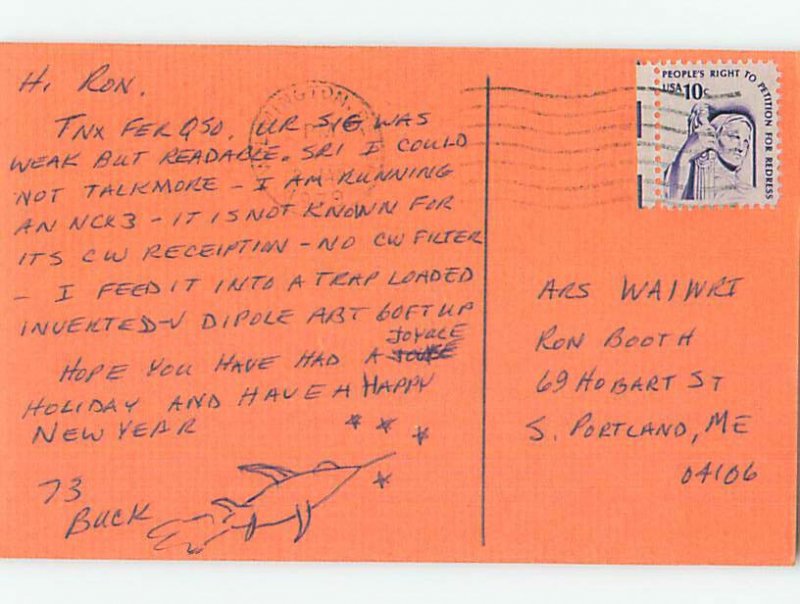 HI RON.
TNX FER QSO. UR SIG WAS
WEAK BUT READABLE. SRI I COULD
NOT TALKMORE - I AM RUNNING
AN NCX3 - IT IS NOT KNOWN FOR
ITS CW RECEIPTION - NO CW FILTER
- I FEED IT INTO A TRAP LOADED
INVERTED-V DIPOLE ABT 60FT UP
HOPE YOU HAVE HAD A JOYOUS
HOLIDAY AND HAVE A HAPPY
NEW YEAR
73
BUCK
INGTON,
PEOPLE'S RIGHT TO PETITION FOR REDRESS
USA 10c
ARS WA1WRI
RON BOOTH
69 HOBART ST
S. PORTLAND, ME
04106